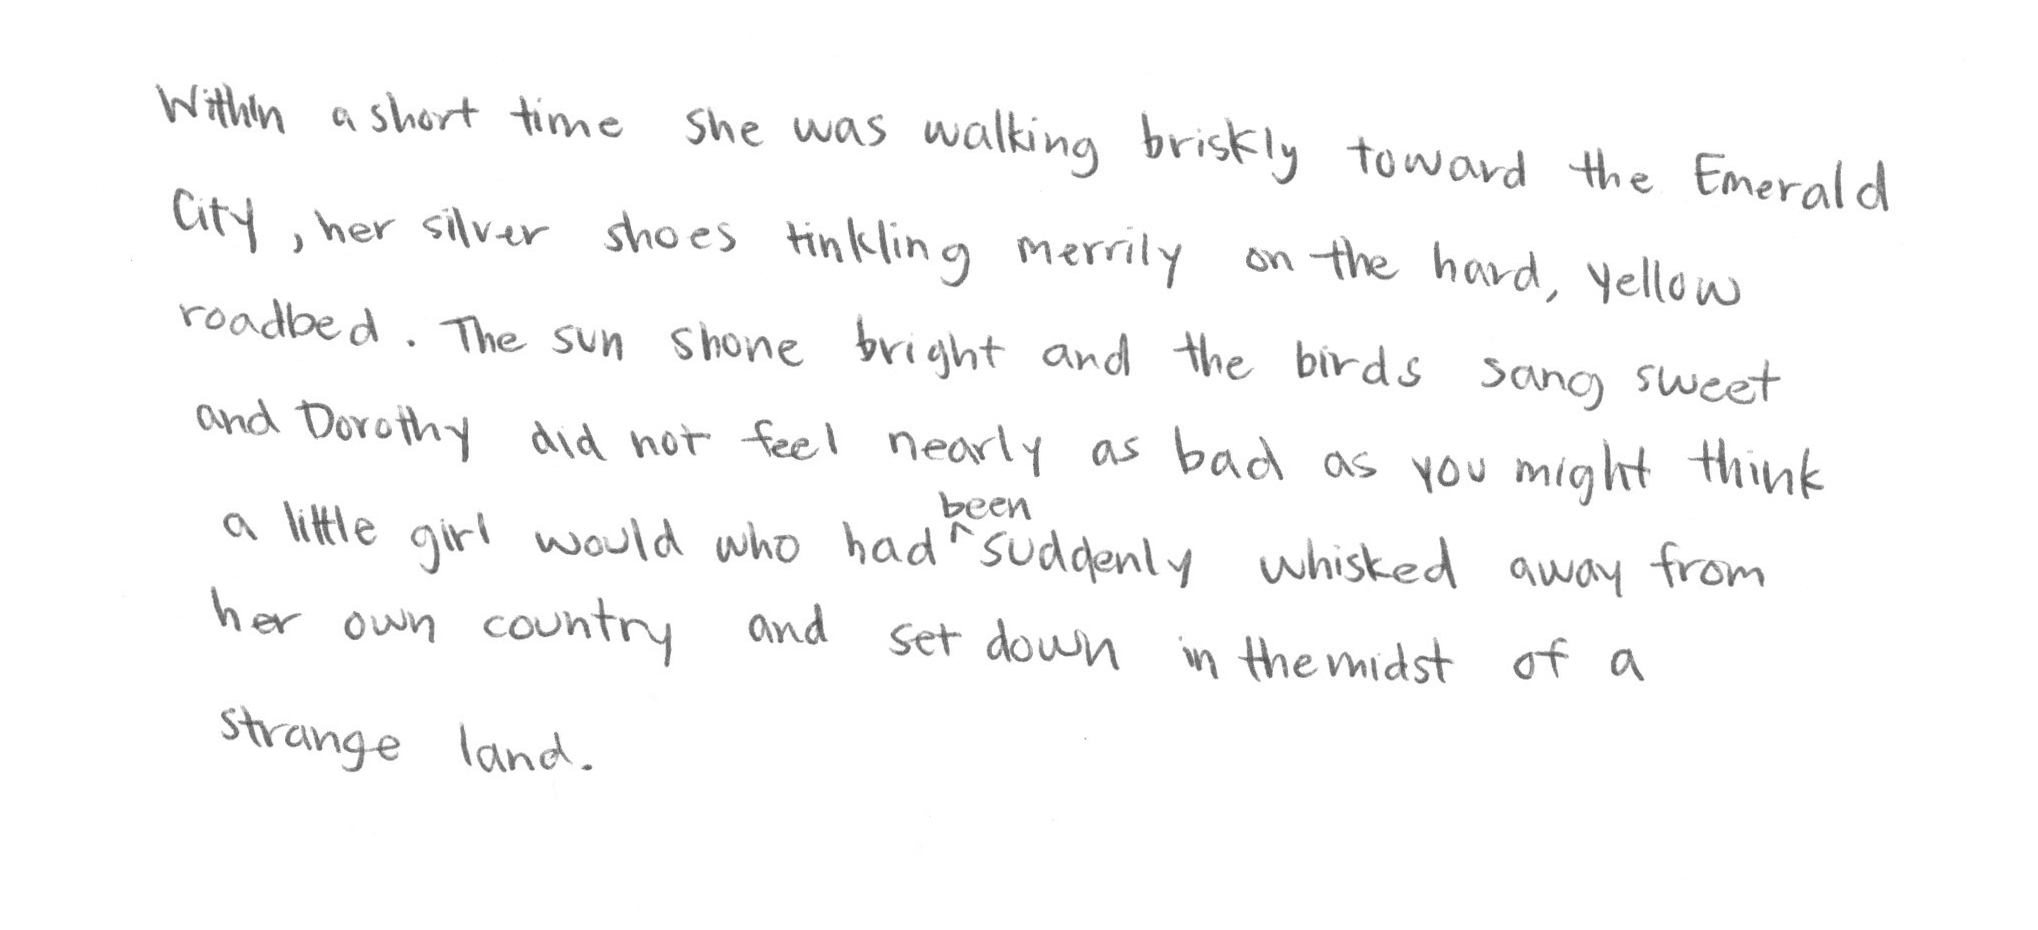 Within a short time she was walking briskly toward the Emerald
City, her silver shoes tinkling merrily on the hard, yellow
roadbed. The sun shone bright and the birds sang sweet
and Dorothy did not feel nearly as bad as you might think
a little girl would who had been suddenly whisked away from
her own country and set down in the midst of a
strange land.